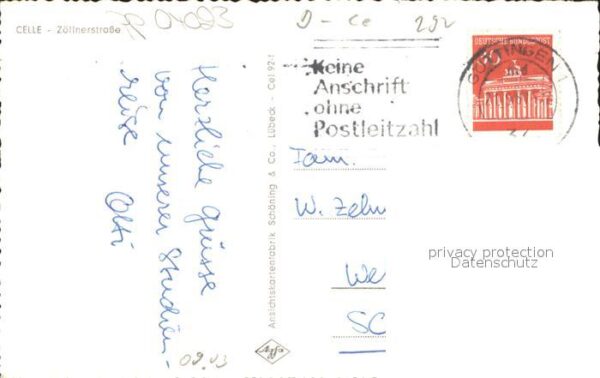 CELLE - Zöllnerstraße
D - Ce 292
Keine
Anschrift
ohne
Postleitzahl
DEUTSCHE BUNDESPOST
GÖTTINGEN 1
Herzliche Grüsse
von unserer Studien-
reise
Fam.
W. Zehn
We
SC
privacy protection
Datenschutz
Ansichtskartenfabrik Schöning & Co., Lübeck - Cel 92-1
Agfa
09.03